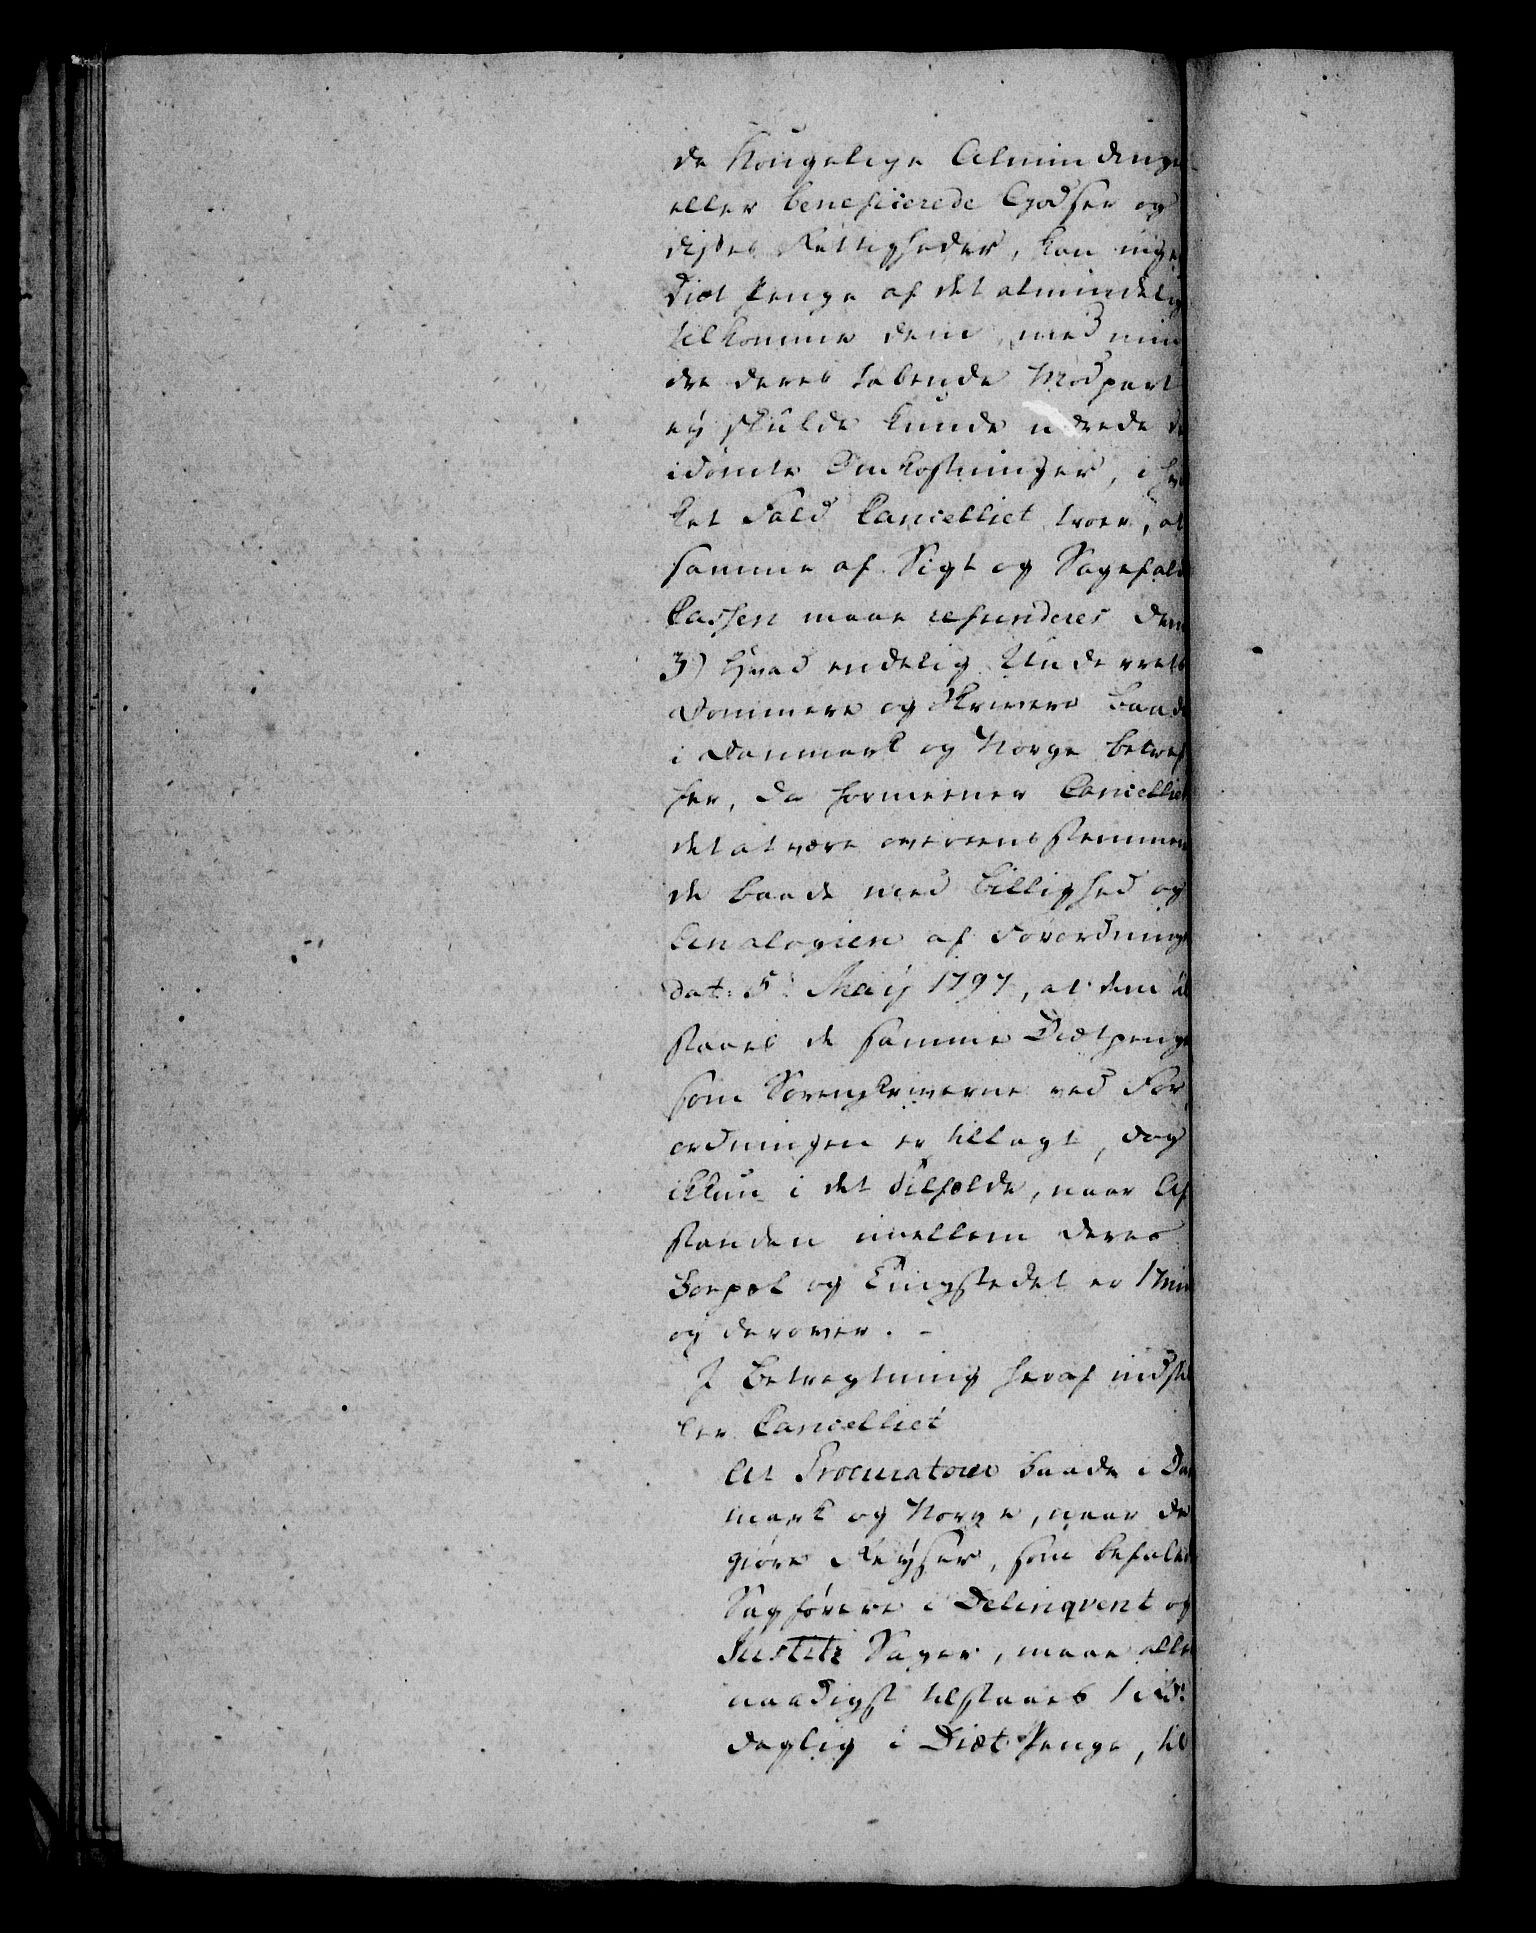 de Kongelige Alminding
eller beneficerede Godser og
disses Rettigheder, kan inge
Diæt Penge af det almindelig
tilkomme dem, med min
dre deres tabende Modpart
ej skulde kunde udrede de
idømte Omkostninger, i hvil
ket Fald Cancelliet troer, at
samme af Sigt og Sagefalds
Cassen maae refunderes dem
3) Hvad endelig Underretts
Dommere og Skrivere baade
i Danmark og Norge betref
fer, da formeener Cancelliet
det at være overeensstemmen
de baade med Billighed og
Analogien af Forordning
dat: 5t May 1797, at dem til
staaes de samme Diætpenge
som Sorenskriverne ved For
ordningen er tillagt, dog
ikkun i det Tilfælde, naar Af
standen imellem deres
Bopæl og Tingstedet er 1 Miil
og derover. -
I Betragtning heraf indstil
ler Cancelliet
At Procuratorer baade i Dan
mark og Norge, naar de
giøre Reyser, som befalede
Sagførere i Delinqvent og
Justitz Sager, maae aller
naadigst tilstaaes 1 Rd:
daglig i Diæt Penge, til